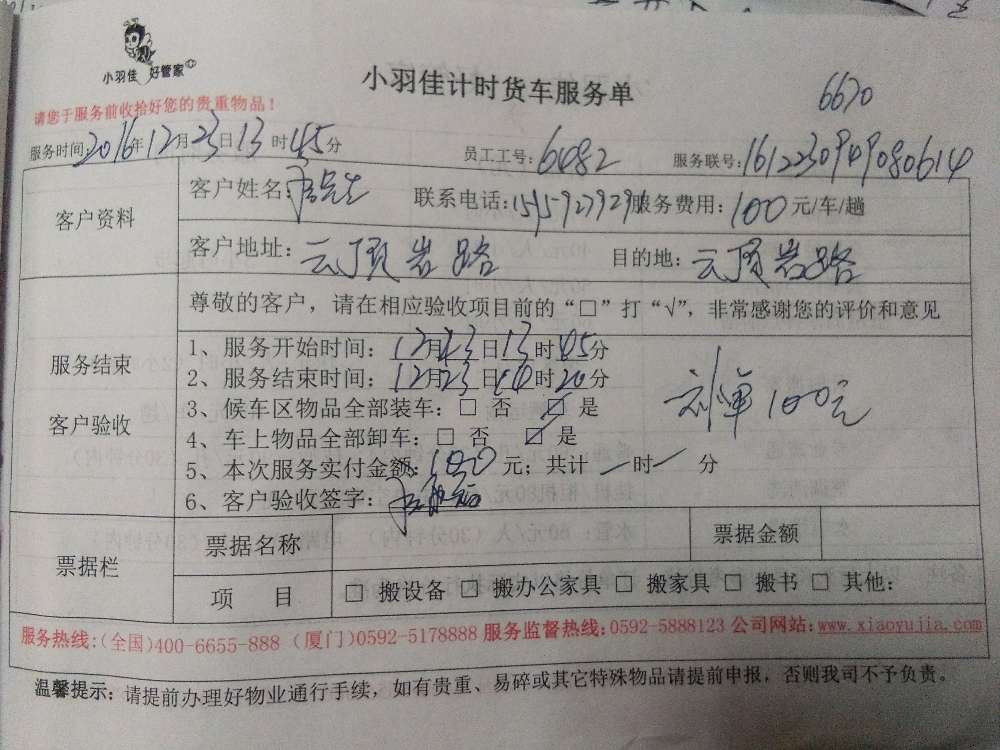 小羽佳 好管家
小羽佳计时货车服务单
6670
请您于服务前收拾好您的贵重物品！
服务时间:2016年12月23日13时45分 员工工号:6482 服务联号:1612230949080614
客户资料
客户姓名: 先生 联系电话: 服务费用:100元/车/趟
客户地址:云顶岩路 目的地:云顶岩路
服务结束
客户验收
尊敬的客户，请在相应验收项目前的“□”打“√”，非常感谢您的评价和意见
1、服务开始时间:12月23日13时45分
2、服务结束时间:12月23日14时20分
3、候车区物品全部装车:□ 否 ☑ 是
4、车上物品全部卸车:□ 否 ☑ 是
单100元
5、本次服务实付金额:100元；共计一时一分
6、客户验收签字:
票据栏
票据名称 票据金额
项 目 □ 搬设备 □ 搬办公家具 □ 搬家具 □ 搬书 □ 其他:
服务热线:(全国)400-6655-888 (厦门)0592-5178888 服务监督热线:0592-5888123 公司网站:www.xiaoyujia.com
温馨提示:请提前办理好物业通行手续，如有贵重、易碎或其它特殊物品请提前申报，否则我司不予负责。